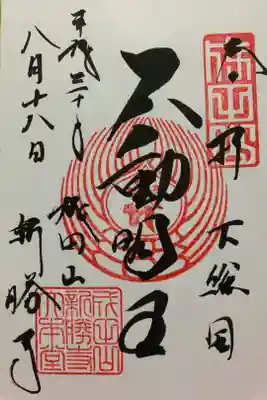 奉拝
下総国
不動明王
成田山
新勝寺
平成三十年
八月十八日
成田山
新勝寺
大本堂